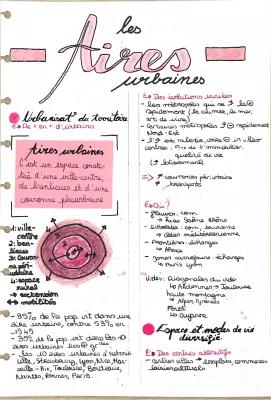 les
Aires
urbaines
Urbanisat° du territoire
De + en + d'urbains
Aires urbaines
C'est un espace consti-
tué d'une ville-centre,
de banlieues et d'une
couronne périurbaine
1: ville-
centre
2: ban-
lieues
3: Couron-
4: espace
rural
↔ extension
↔ mobilités
- 95% de la pop. vit dans une
aire urbaine, contre 53% en
1945
- 35% de la pop. vit dans les 10
aires urbaines les
- les 10 aires urbaines
Lille, Strasbourg, Lyon, Nice, Mar-
seille-Aix, Toulouse, Bordeaux,
Nantes, Rennes, Paris.
Des évolutions variées
- les métropoles qui se
rapidement (le climat, la mer,
art de vivre)
- Certaines métropoles rapidement
Nord-Est
- l'
centres : Prix de l'immobilier
qualité de vie
(vieillissement)
=> couronnes périurbaine
bourgeois
Où ?
- fleuves: com.
→ Axe Saône Rhône
- littoraux: com, tourisme
→ côtes méditerranéenne
- Frontières: échanges
→ Alsace
échanges
→ Paris Lyon
Vides: Diagonales du vide
→ Ardennes → Toulouse
haute montagne
→ Alpes, Pyrénées
Forêt
→ Guyane
Espaces et modes de vie
diversifié
Des centres attractifs
- centres villes → emplois, commerces